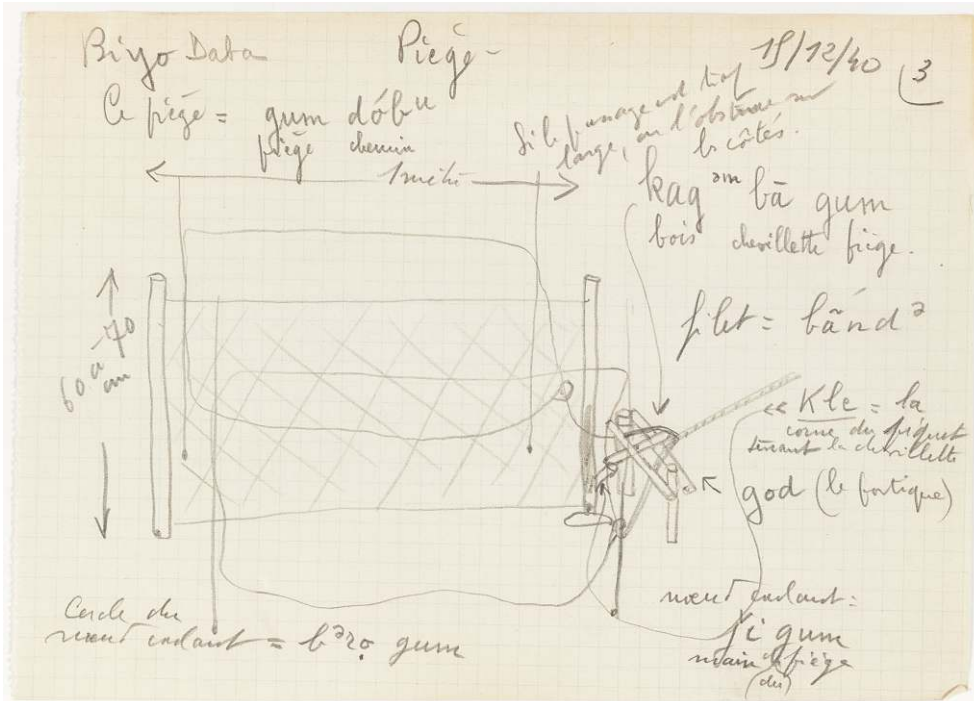 Biyo Data
Piège -
19/12/40
3
Ce piège = gum dóbᵘ
piège chemin
Si le passage est trop
large, on l'obstrue sur
les côtés.
1 mètre
kagᵊᵐ bā gum
bois chevillette piège.
60 à 70
cm
filet = bãndᵊ
<< Kle = la
corne du piquet
tenant la chevillette
god (le portique)
Cercle du
nœud coulant = bᵊrọ gum
nœud coulant :
ji gum
main piège
(du)